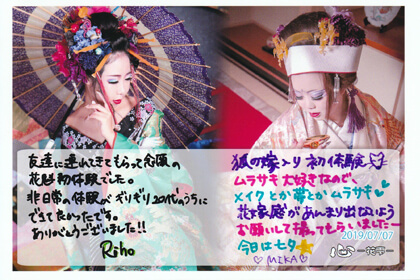 友達に連れてきてもらって念願の
花魁初体験でした。
非日常の体験がギリギリ20代のうちに
できて良かったです。
ありがとうございました!!
Riho
狐の嫁入り 初体験
ムラサキ大好きなので、
メイクとか帯とかムラサキ♥
花嫁感があんまり出ないよう
お願いして撮ってもらいましたー
今日は七夕☆
♡MIKA♡
2019/07/07
心 -花雫-